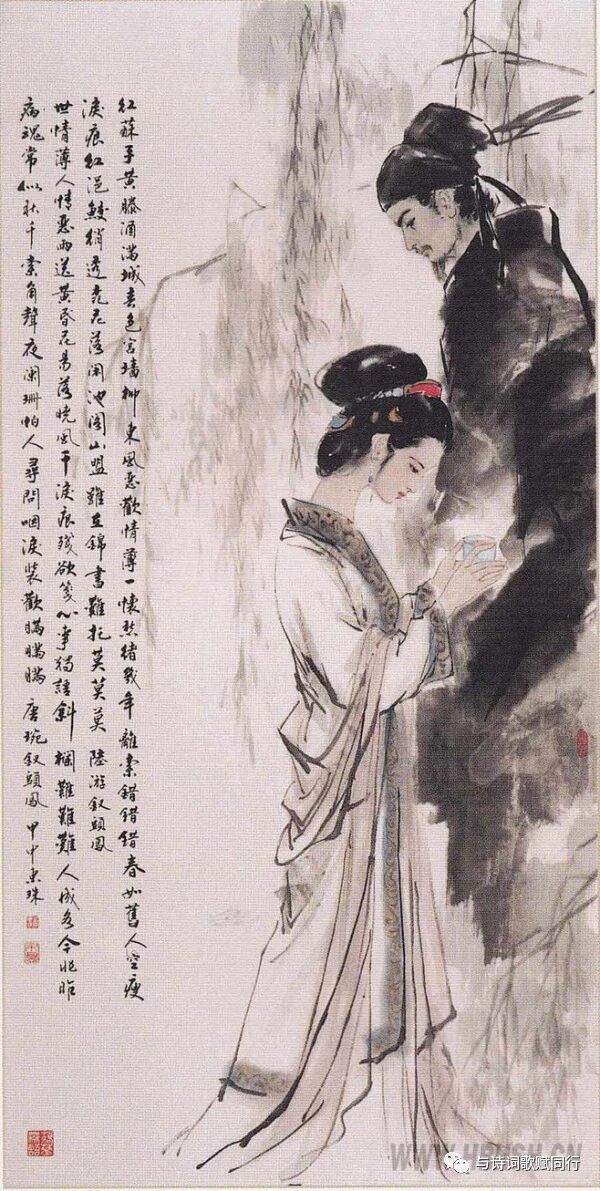 红蘇手黄滕酒满城春色宫墙柳東風恶歡情薄一懷愁绪幾年離索錯錯錯春如舊人空瘦
淚痕红浥鲛绡透桃花落闲池阁山盟雖在錦書難托莫莫莫 陸游釵頭鳳
世情薄人情恶雨送黄昏花易落晓風干淚痕残欲箋心事獨語斜欄難難難人成各今非昨
病魂常似秋千索角聲夜闌珊怕人尋問咽淚装歡瞞瞞瞞 唐琬釵頭鳳 甲申東珠
与诗词歌赋同行